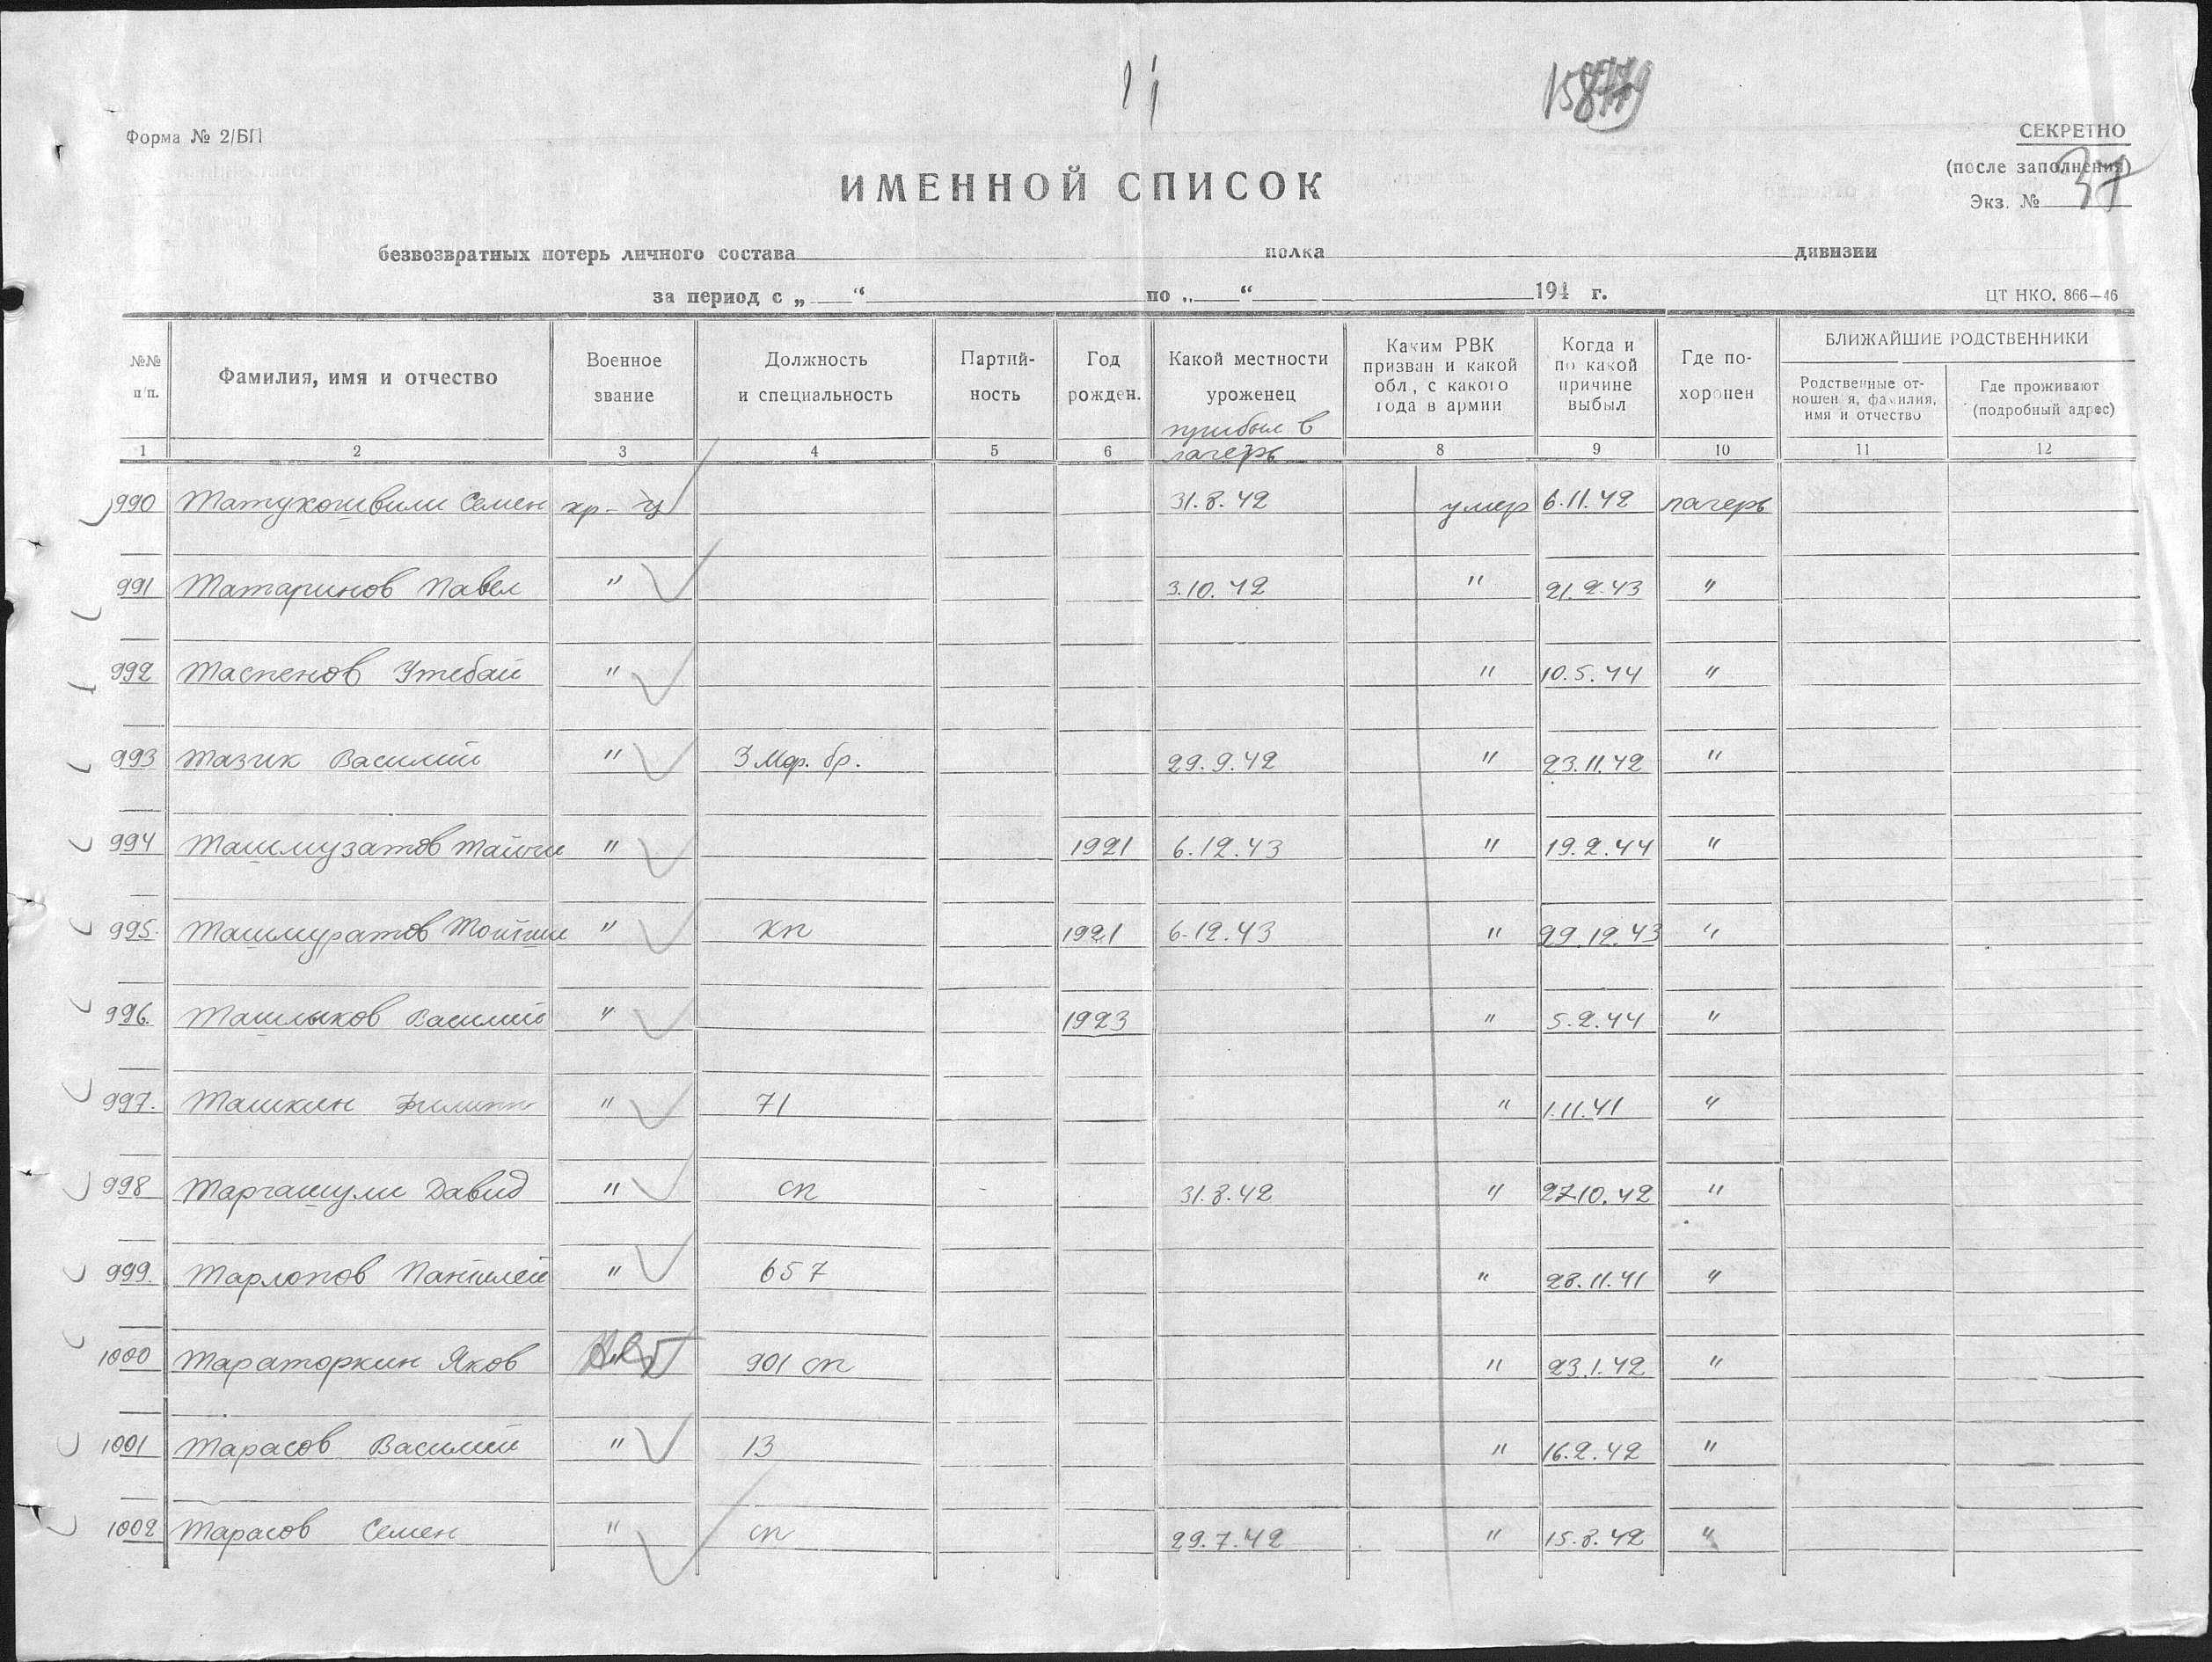 Форма № 2/БП
СЕКРЕТНО
(после заполнения)
Экз. № 37
ИМЕННОЙ СПИСОК
безвозвратных потерь личного состава полка дивизии
за период с „ “ по „ “ 194 г.
ЦТ НКО. 866—46
№№ п/п. Фамилия, имя и отчество Военное звание Должность и специальность Партийность Год рожден. Какой местности уроженец Каким РВК призван и какой обл., с какого года в армии Когда и по какой причине выбыл Где похоронен БЛИЖАЙШИЕ РОДСТВЕННИКИ
Родственные отношения, фамилия, имя и отчество Где проживают (подробный адрес)
прибыл в лагерь
1 2 3 4 5 6 7 8 9 10 11 12
990 Татукошвили Семен кр-ц 31.8.42 умер 6.11.42 лагерь
991 Татаринов Павел " 3.10.42 " 21.2.43 "
992 Таспенов Утебай " " 10.5.44 "
993 Тазик Василий " 3 Мор. бр. 29.9.42 " 23.11.42 "
994 Ташмузатов " 1921 6.12.43 " 19.2.44 "
995. Ташмуратов " 1921 6.12.43 " 29.12.43 "
996. Ташлыков Василий " 1923 " 5.2.44 "
997. Ташкин Филипп " 71 " 1.11.41 "
998 Таргашули Давид " сп 31.8.42 " 27.10.42 "
999. Тарлопов Пантилей " 657 " 28.11.41 "
1000 Тараторкин Яков " 901 сп " 23.1.42 "
1001 Тарасов Василий " 13 " 16.2.42 "
1002 Тарасов Семен " сп 29.7.42 " 15.8.42 "